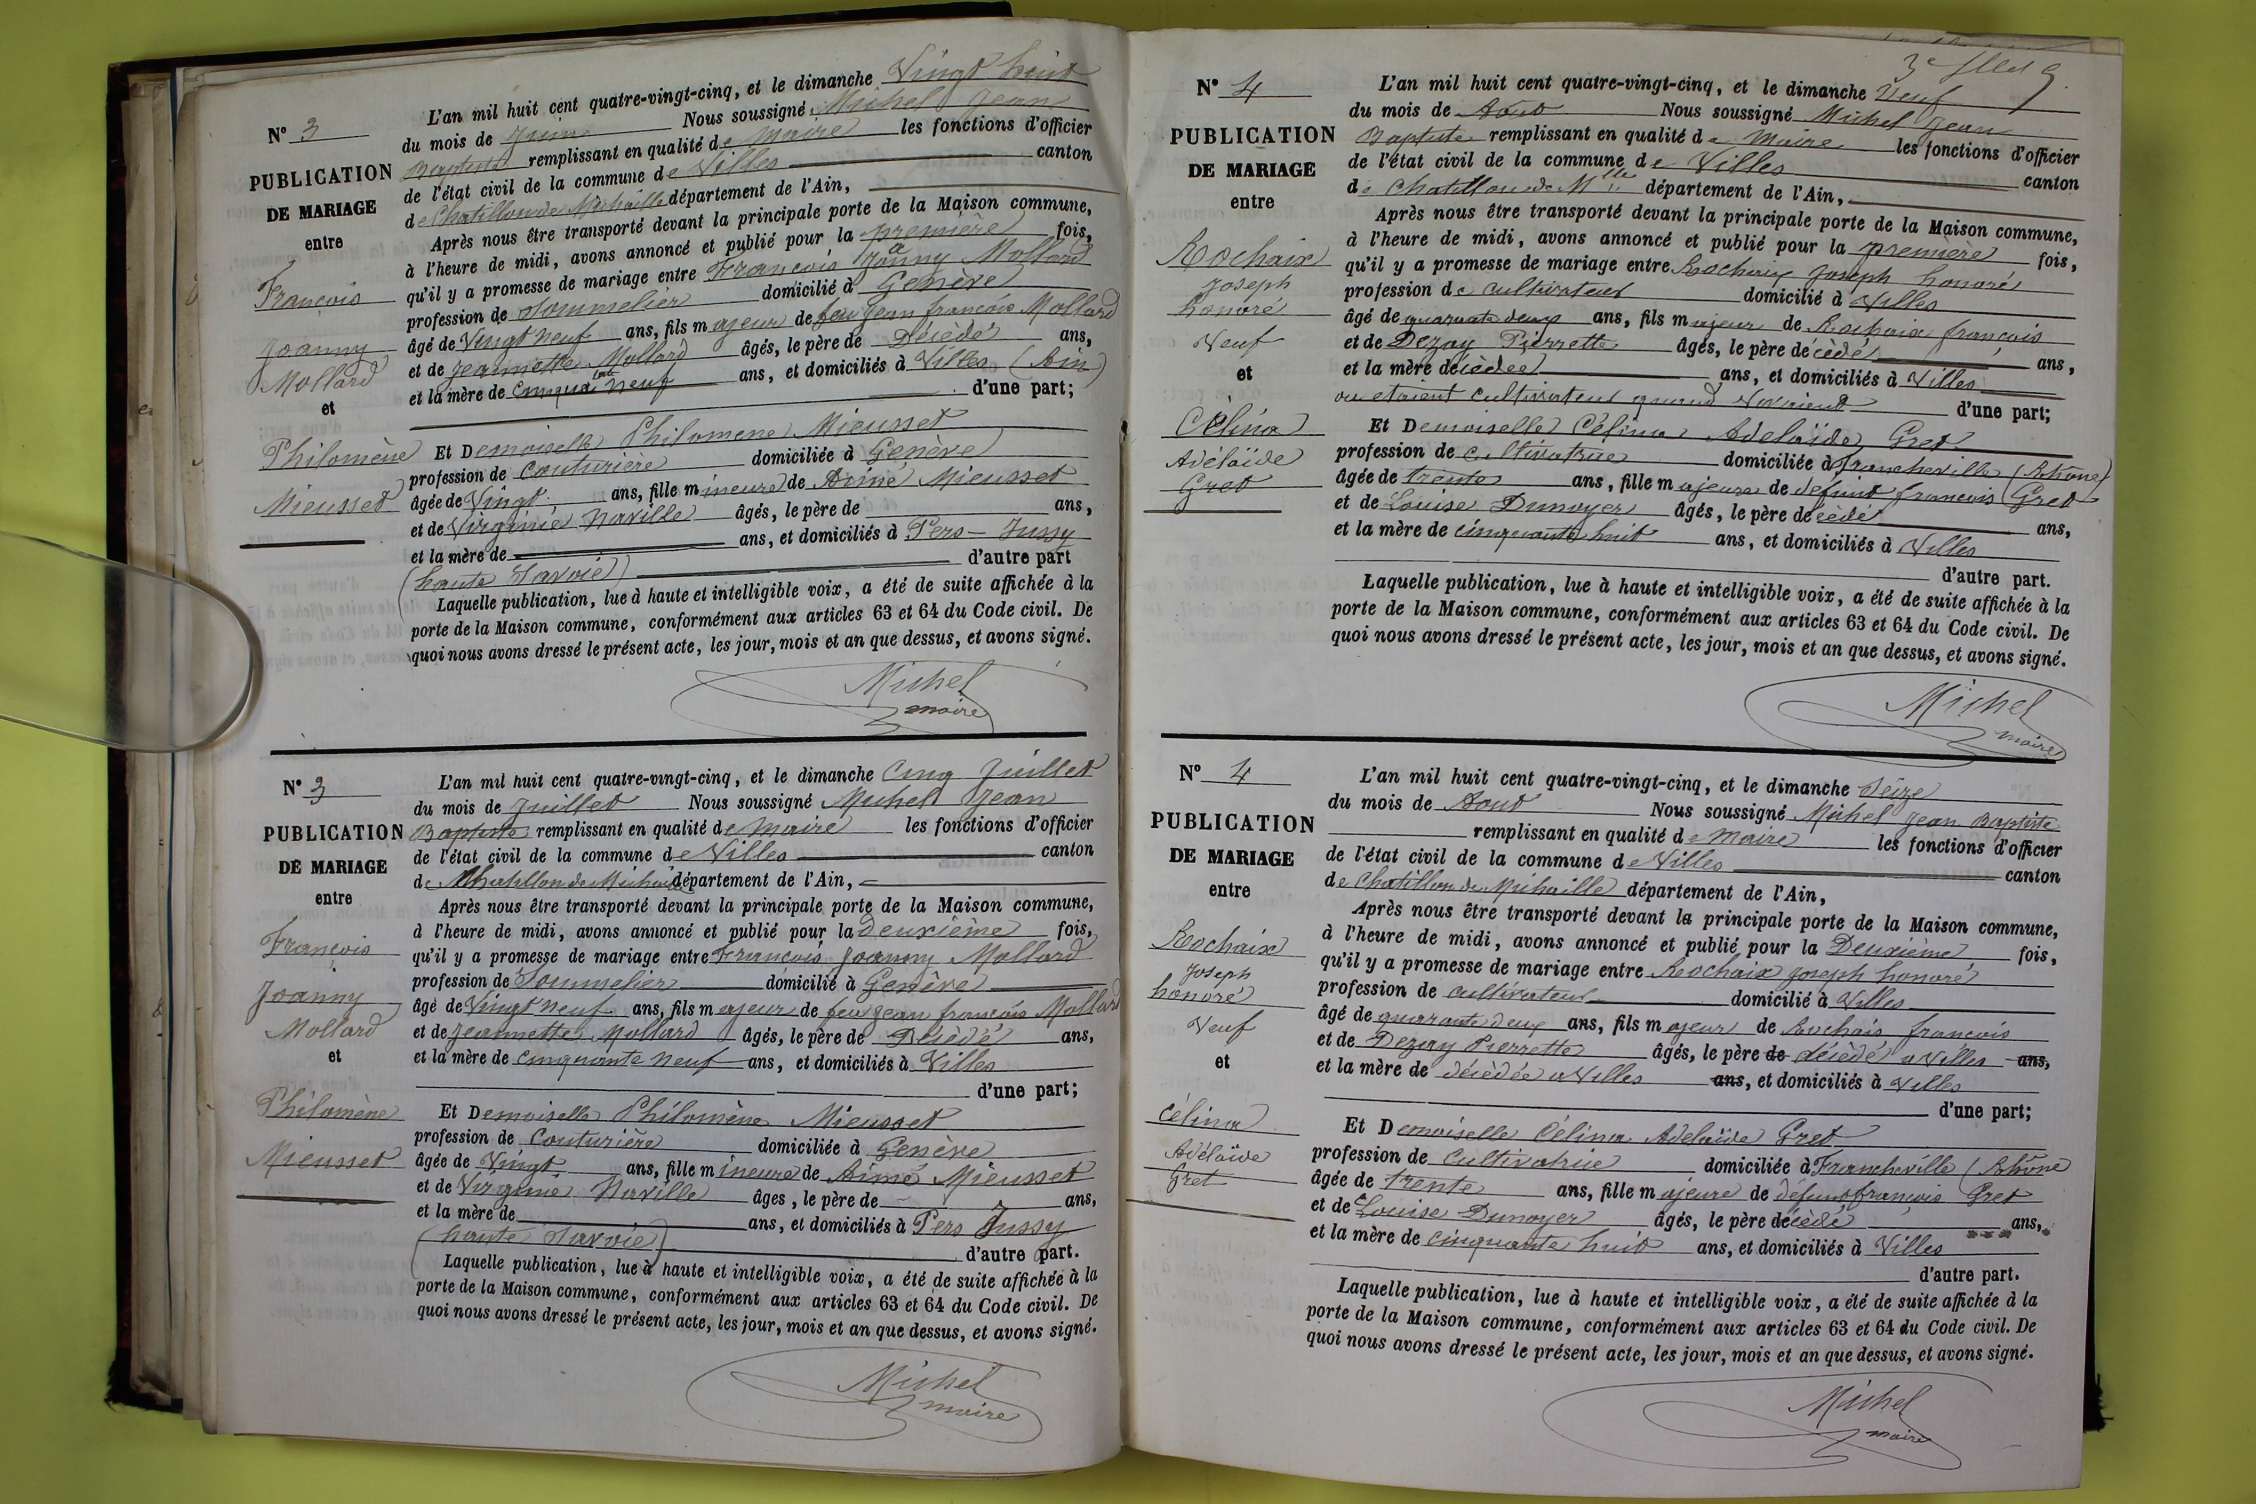 N° 3
PUBLICATION
DE MARIAGE
entre
François
Joanny
Mollard
et
Philomène
Mieusset
L'an mil huit cent quatre-vingt-cinq, et le dimanche Vingt huit
du mois de Juin Nous soussigné Michel Jean
Baptiste remplissant en qualité de Maire les fonctions d'officier
de l'état civil de la commune de Villes canton
de Chatillon de Michaille département de l'Ain,
Après nous être transporté devant la principale porte de la Maison commune,
à l'heure de midi, avons annoncé et publié pour la première fois,
qu'il y a promesse de mariage entre François Joanny Mollard
profession de Sommelier domicilié à Genève
âgé de Vingt neuf ans, fils majeur de feu Jean françois Mollard
et de Jeannette Mollard âgés, le père de Décédé ans,
et la mère de Cinquante neuf ans, et domiciliés à Villes (Ain)
d'une part;
Et Demoiselle Philomene Mieusset
profession de Couturière domiciliée à Genève
âgée de Vingt ans, fille mineure de Aimé Mieusset
et de Virginie Naville âgés, le père de ans,
et la mère de ans, et domiciliés à Pers-Jussy
(haute Savoie) d'autre part
Laquelle publication, lue à haute et intelligible voix, a été de suite affichée à la
porte de la Maison commune, conformément aux articles 63 et 64 du Code civil. De
quoi nous avons dressé le présent acte, les jour, mois et an que dessus, et avons signé.
Michel
maire
N° 3
PUBLICATION
DE MARIAGE
entre
François
Joanny
Mollard
et
Philomène
Mieusset
L'an mil huit cent quatre-vingt-cinq, et le dimanche Cinq Juillet
du mois de Juillet Nous soussigné Michel Jean
Baptiste remplissant en qualité de Maire les fonctions d'officier
de l'état civil de la commune de Villes canton
de Chatillon de Michaille département de l'Ain,
Après nous être transporté devant la principale porte de la Maison commune,
à l'heure de midi, avons annoncé et publié pour la deuxième fois,
qu'il y a promesse de mariage entre François Joanny Mollard
profession de Sommelier domicilié à Genève
âgé de Vingt neuf ans, fils majeur de feu Jean françois Mollard
et de Jeannette Mollard âgés, le père de Décédé ans,
et la mère de cinquante neuf ans, et domiciliés à Villes
d'une part;
Et Demoiselle Philomène Mieusset
profession de Couturière domiciliée à Genève
âgée de Vingt ans, fille mineure de Aimé Mieusset
et de Virginie Naville âges, le père de ans,
et la mère de ans, et domiciliés à Pers Jussy
(haute Savoie) d'autre part.
Laquelle publication, lue à haute et intelligible voix, a été de suite affichée à la
porte de la Maison commune, conformément aux articles 63 et 64 du Code civil. De
quoi nous avons dressé le présent acte, les jour, mois et an que dessus, et avons signé.
Michel
maire
3e
N° 4
PUBLICATION
DE MARIAGE
entre
Rochaix
Joseph
honoré
Veuf
et
Célina
Adélaïde
Gret
L'an mil huit cent quatre-vingt-cinq, et le dimanche Neuf
du mois de Aout Nous soussigné Michel Jean
Baptiste remplissant en qualité de Maire les fonctions d'officier
de l'état civil de la commune de Villes canton
de Chatillon de Mlle département de l'Ain,
Après nous être transporté devant la principale porte de la Maison commune,
à l'heure de midi, avons annoncé et publié pour la première fois,
qu'il y a promesse de mariage entre Rochaix Joseph honoré
profession de cultivateur domicilié à Villes
âgé de quarante deux ans, fils majeur de Rochaix françois
et de Dezay Pierrette âgés, le père décédé ans,
et la mère décédée ans, et domiciliés à Villes
ou etaient cultivateur quand vivaient d'une part;
Et Demoiselle Célina Adelaïde Gret
profession de cultivatrice domiciliée à francheville (Rhône)
âgée de trente ans, fille majeure de defunt francois Gret
et de Louise Dunoyer âgés, le père décédé ans,
et la mère de cinquante huit ans, et domiciliés à Villes
d'autre part.
Laquelle publication, lue à haute et intelligible voix, a été de suite affichée à la
porte de la Maison commune, conformément aux articles 63 et 64 du Code civil. De
quoi nous avons dressé le présent acte, les jour, mois et an que dessus, et avons signé.
Michel
maire
N° 4
PUBLICATION
DE MARIAGE
entre
Rochaix
Joseph
honoré
Veuf
et
Célina
Adélaïde
Gret
L'an mil huit cent quatre-vingt-cinq, et le dimanche Seize
du mois de Aout Nous soussigné Michel Jean Baptiste
remplissant en qualité de Maire les fonctions d'officier
de l'état civil de la commune de Villes canton
de Chatillon de Michaille département de l'Ain,
Après nous être transporté devant la principale porte de la Maison commune,
à l'heure de midi, avons annoncé et publié pour la Deuxième fois,
qu'il y a promesse de mariage entre Rochaix Joseph honoré
profession de cultivateur domicilié à Villes
âgé de quarante deux ans, fils majeur de Rochaix francois
et de Dezay Pierrette âgés, le père de décédé a Villes ans,
et la mère de décédée a Villes ans, et domiciliés à Villes
d'une part;
Et Demoiselle Célina Adelaïde Gret
profession de Cultivatrice domiciliée à Francheville (Rhône
âgée de trente ans, fille majeure de défunt françois Gret
et de Louise Dunoyer âgés, le père décédé ans,
et la mère de cinquante huit ans, et domiciliés à Villes
d'autre part.
Laquelle publication, lue à haute et intelligible voix, a été de suite affichée à la
porte de la Maison commune, conformément aux articles 63 et 64 du Code civil. De
quoi nous avons dressé le présent acte, les jour, mois et an que dessus, et avons signé.
Michel
maire